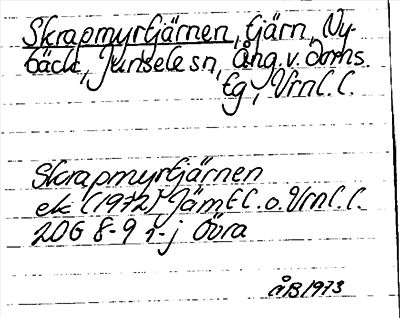 Skrapmyrtjärnen, tjärn, Ny-
bäck, Junsele sn, Ång. v. doms.
tg, Vrnl. l.
Skrapmyrtjärnen
ek (1972) Jämtl. o. Vrnl. l.
20G 8-9 i-j Övra
ÅB 1973